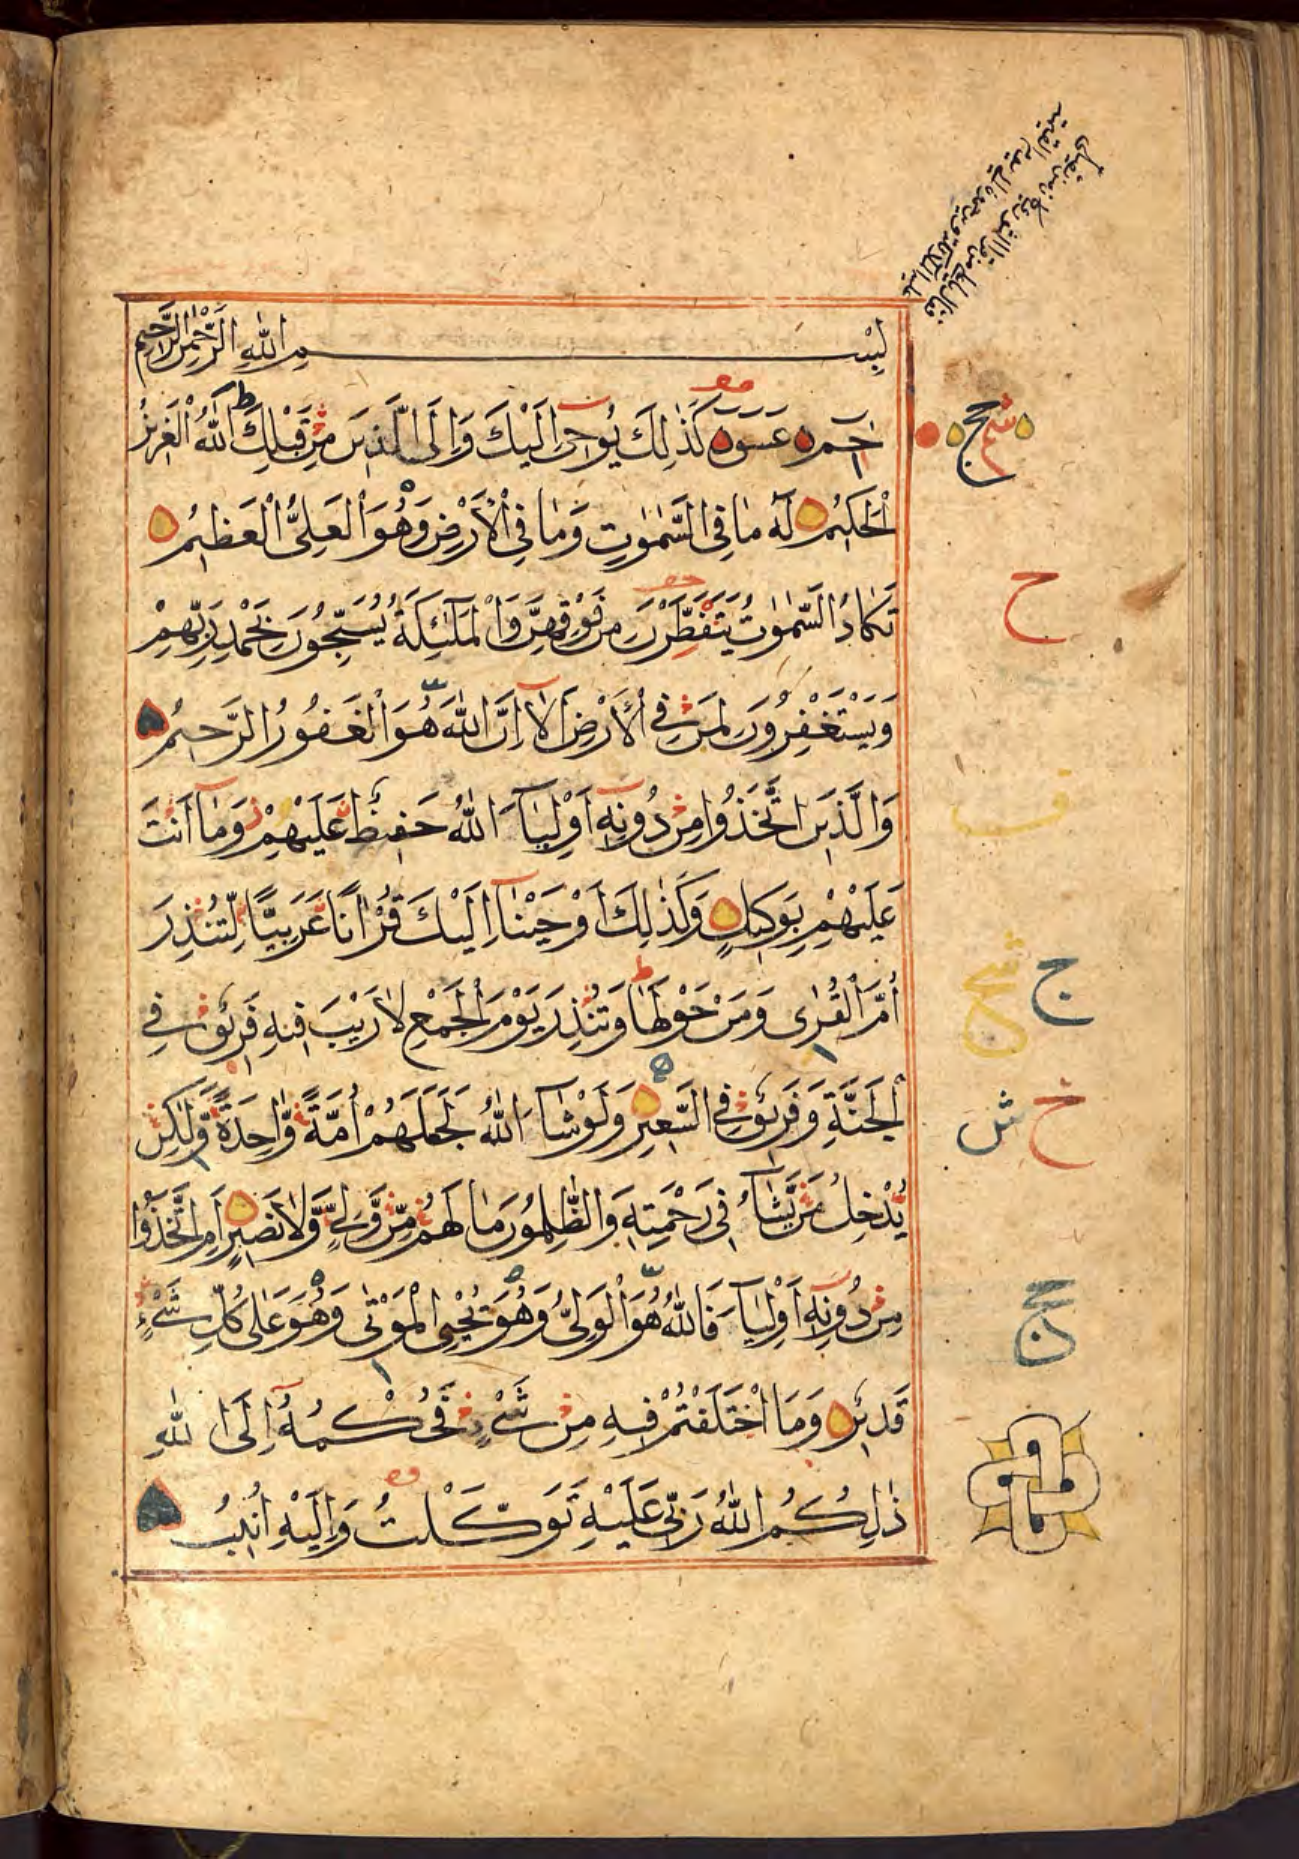 بِسْمِ اللهِ الرَّحْمٰنِ الرَّحِيمِ
حٰمٓ عٓسٓقٓ كَذٰلِكَ يُوحِي إِلَيْكَ وَإِلَى الَّذِينَ مِنْ قَبْلِكَ اللهُ الْعَزِيزُ
الْحَكِيمُ لَهُ مَا فِي السَّمٰوٰتِ وَمَا فِي الْأَرْضِ وَهُوَ الْعَلِيُّ الْعَظِيمُ
تَكَادُ السَّمٰوٰتُ يَتَفَطَّرْنَ مِنْ فَوْقِهِنَّ وَالْمَلٰٓئِكَةُ يُسَبِّحُونَ بِحَمْدِ رَبِّهِمْ
وَيَسْتَغْفِرُونَ لِمَنْ فِي الْأَرْضِ أَلَا إِنَّ اللهَ هُوَ الْغَفُورُ الرَّحِيمُ
وَالَّذِينَ اتَّخَذُوا مِنْ دُونِهِ أَوْلِيَآءَ اللهُ حَفِيظٌ عَلَيْهِمْ وَمَا أَنْتَ
عَلَيْهِمْ بِوَكِيلٍ وَكَذٰلِكَ أَوْحَيْنَا إِلَيْكَ قُرْاٰنًا عَرَبِيًّا لِّتُنْذِرَ
أُمَّ الْقُرٰى وَمَنْ حَوْلَهَا وَتُنْذِرَ يَوْمَ الْجَمْعِ لَا رَيْبَ فِيهِ فَرِيقٌ فِي
الْجَنَّةِ وَفَرِيقٌ فِي السَّعِيرِ وَلَوْ شَآءَ اللهُ لَجَعَلَهُمْ أُمَّةً وَّاحِدَةً وَّلٰكِنْ
يُدْخِلُ مَنْ يَّشَآءُ فِي رَحْمَتِهِ وَالظّٰلِمُونَ مَا لَهُمْ مِّنْ وَّلِيٍّ وَّلَا نَصِيرٍ أَمِ اتَّخَذُوا
مِنْ دُونِهِ أَوْلِيَآءَ فَاللهُ هُوَ الْوَلِيُّ وَهُوَ يُحْيِي الْمَوْتٰى وَهُوَ عَلٰى كُلِّ شَيْءٍ
قَدِيرٌ وَمَا اخْتَلَفْتُمْ فِيهِ مِنْ شَيْءٍ فَحُكْمُهُ إِلَى اللهِ
ذٰلِكُمُ اللهُ رَبِّي عَلَيْهِ تَوَكَّلْتُ وَإِلَيْهِ أُنِيبُ